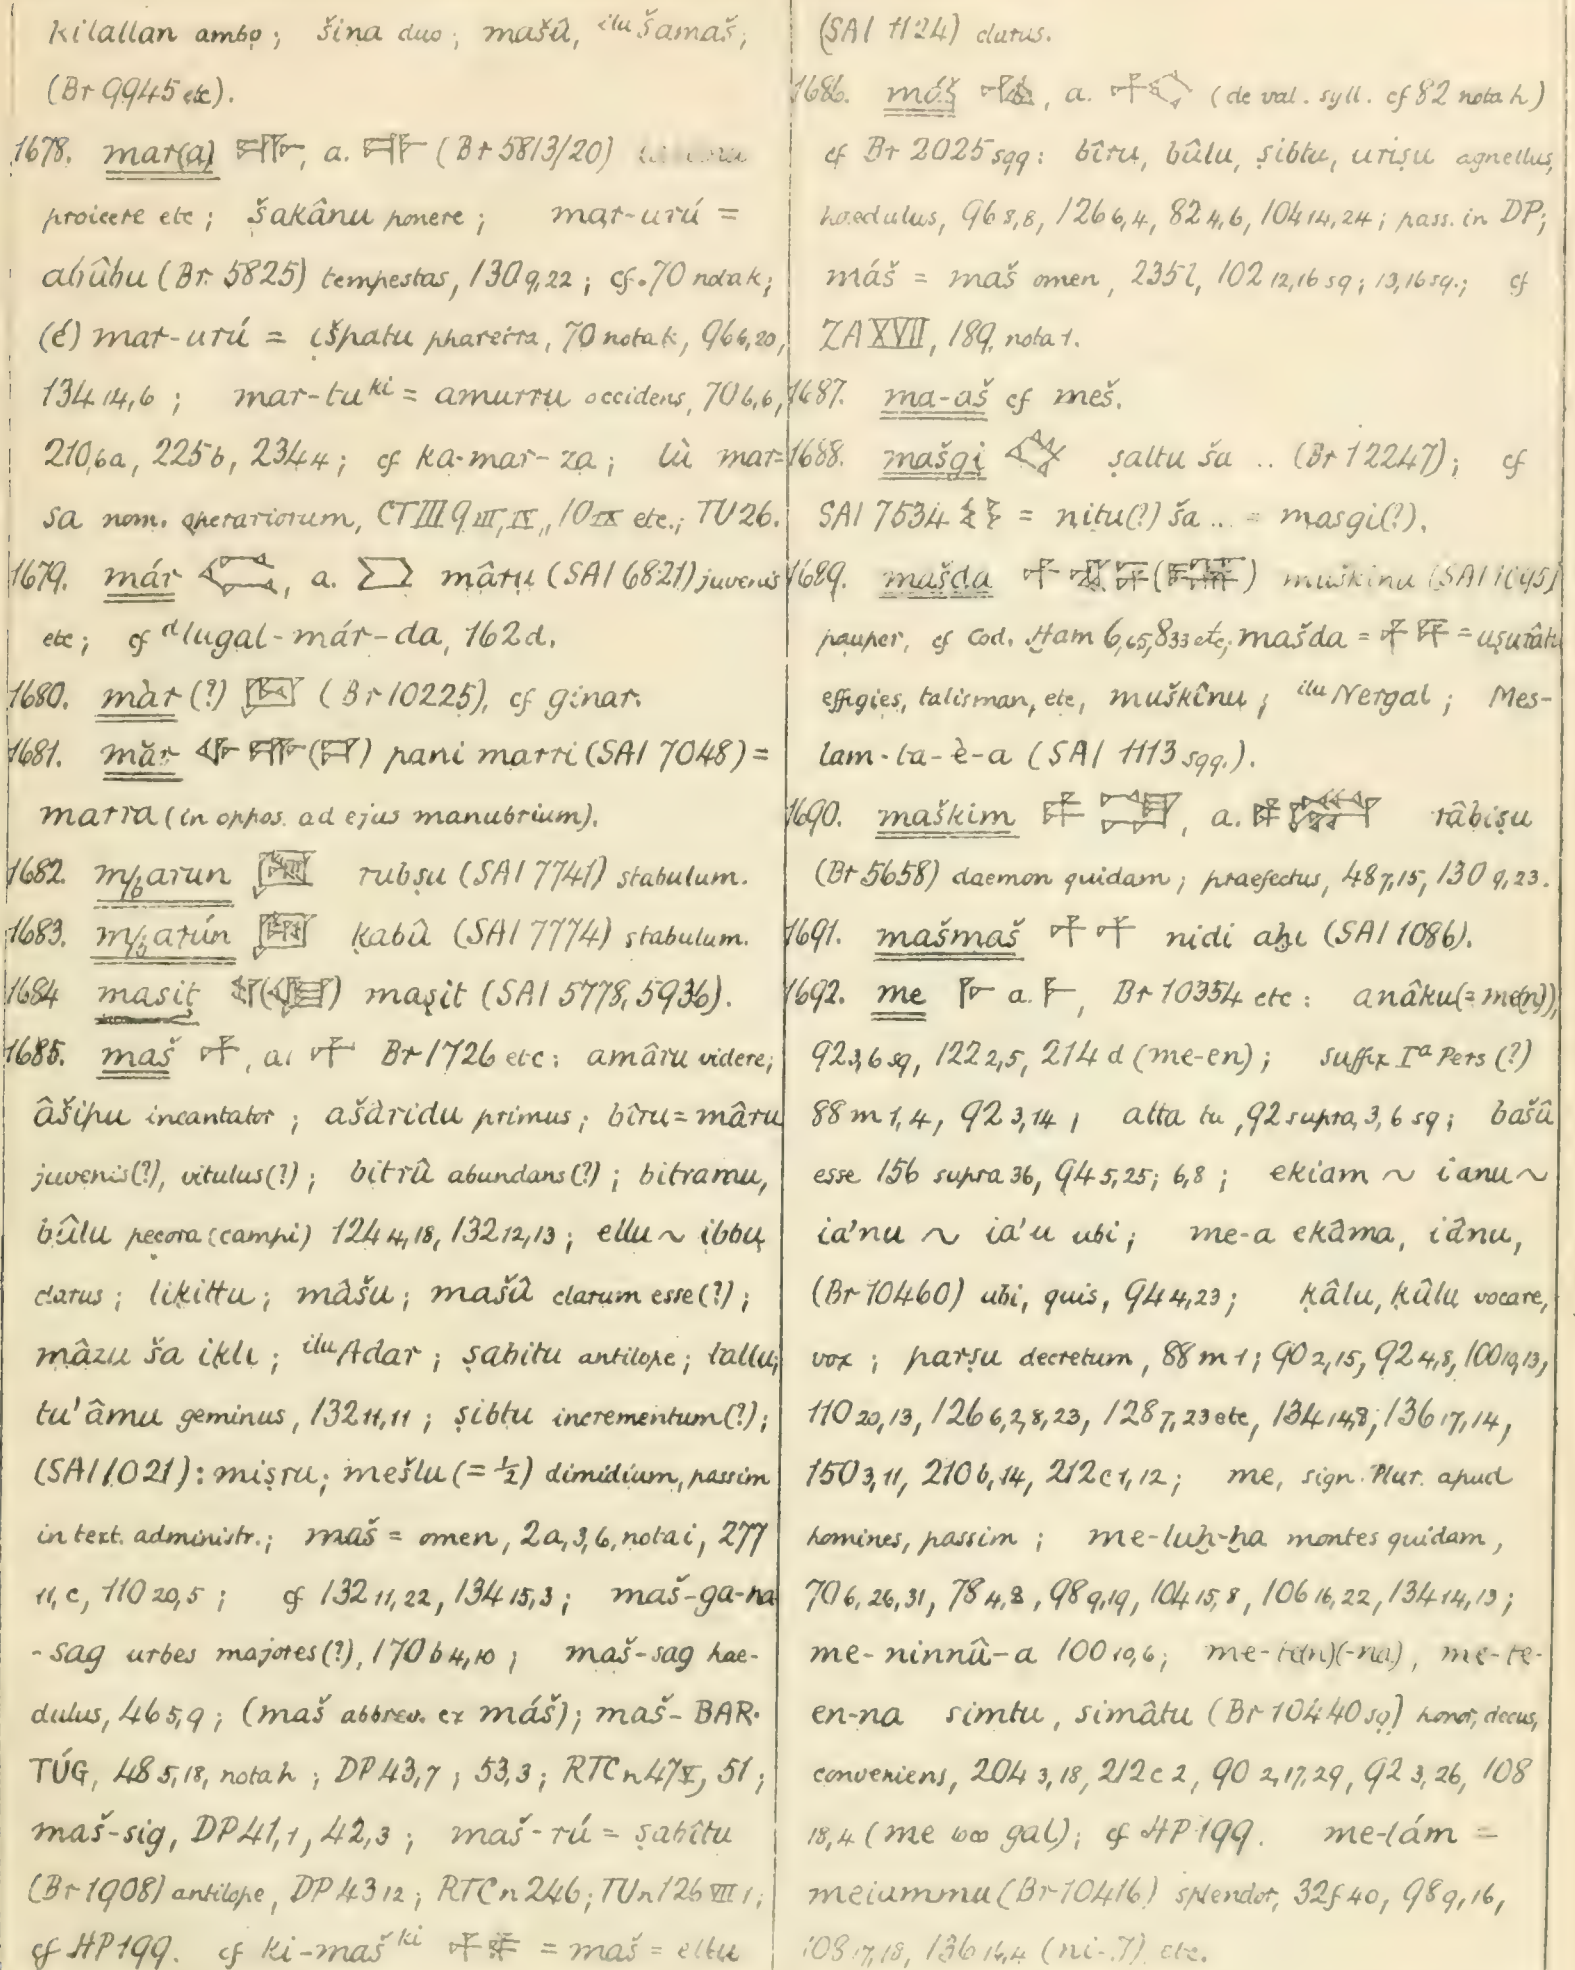 kilallan ambo; šina duo; mašû, ilu Šamaš;
(Br 9945 etc).
1678. mar(a) 𒈥, a. 𒈥 (Br 5813/20)
proicere etc; šakânu ponere; mar-urú =
abûbu (Br. 5825) tempestas, 130 9,22; cf. 70 nota k;
(é) mar-urú = išpatu pharetra, 70 nota k, 96 6,20,
134 14,6; mar-tu ki = amurru occidens, 70 6,6,
210,6a, 225b, 234 4; cf ka-mar-za; lù mar=
sa nom. operariorum, CT III 9 III, IX, 10 IX etc.; TU 26.
1679. már, a. mâru (SAI 6821) juvenis
etc; cf d lugal-már-da, 162d.
1680. màr (?) (Br 10225), cf ginar.
1681. măr pani marri (SAI 7048) =
marra (in oppos. ad ejus manubrium).
1682. m/barun rubṣu (SAI 7741) stabulum.
1683. m/barún kabû (SAI 7774) stabulum.
1684 masiṭ maṣit (SAI 5778, 5936).
1685. maš 𒈦, a. 𒈦 Br 1726 etc: amâru videre;
âšipu incantator; ašâridu primus; bîru = mâru
juvenis(?), vitulus(?); bitrû abundans(?); bitramu,
bûlu pecora (campi) 124 4,18, 132 12,13; ellu ~ ibbu
clarus; liḳittu; mâšu; mašû clarum esse(?);
mâzu ša iḳli; ilu Adar; ṣabitu antilope; tallu;
tu'âmu geminus, 132 11,11; ṣibtu incrementum(?);
(SAI 1021): miṣru; mešlu (= ½) dimidium, passim
in text. administr.; maš = omen, 2a,3,6, nota i, 277
11, c, 110 20,5; cf 132 11,22, 134 15,3; maš-ga-na
-sag urbes majores(?), 170 b 4,10; maš-sag hae-
dulus, 46 5,9; (maš abbrev. ex máš); maš-BAR.
TÚG, 48 5,18, nota h; DP 43,7; 53,3; RTC n 47 V, 51;
maš-sig, DP 41,1, 42,3; maš-rú = ṣabîtu
(Br 1908) antilope, DP 43 12; RTC n 246; TU n 126 VIII 1;
cf HP 199. cf ki-maš ki = maš = ellu
(SAI 1124) clarus.
1686. máš, a. (de val. syll. cf 82 nota h)
cf Br 2025 sqq: bîru, bûlu, ṣibtu, uriṣu agnellus,
haedulus, 96 8,8, 126 6,4, 82 4,6, 104 14,24; pass. in DP;
máš = maš omen, 235 l, 102 12,16 sq; 13,16 sq.; cf
ZA XVII, 189, nota 1.
1687. ma-aš cf meš.
1688. mašgi ṣaltu ša .. (Br 12247); cf
SAI 7534 = nitu(?) ša ... = masgi(?).
1689. mašda muškînu (SAI 1045)
pauper, cf Cod. Ham 6,65, 8 33 etc; mašda = = uṣurâtu
effigies, talisman, etc, muškînu; ilu Nergal; Mes-
lam-ta-è-a (SAI 1113 sqq.).
1690. maškim, a. râbiṣu
(Br 5658) daemon quidam; praefectus, 48 7,15, 130 9,23.
1691. mašmaš 𒈦 𒈦 nidi aḫi (SAI 1086).
1692. me 𒈨 a. 𒈨, Br 10354 etc: anâku (= me(n)),
92 3,6 sq, 122 2,5, 214 d (me-en); suffix Iª Pers (?)
88 m 1,4, 92 3,14; atta tu, 92 supra, 3, 6 sq; bašû
esse 156 supra 36, 94 5,25; 6,8; ekiam ~ ianu ~
ia'nu ~ ia'u ubi; me-a ekâma, iânu,
(Br 10460) ubi, quis, 94 4,23; ḳâlu, ḳûlu vocare,
vox; parṣu decretum, 88 m 1; 90 2,15, 92 4,8, 100 10,13,
110 20,13, 126 6,2,8,23, 128 7,23 etc, 134 14,8, 136 17,14,
150 3,11, 210 b,14, 212 c 1,12; me, sign. Plur. apud
homines, passim; me-luḫ-ḫa montes quidam,
70 6,26,31, 78 4,8, 98 9,19, 104 15,8, 106 16,22, 134 14,13;
me-ninnû-a 100 10,6; me-te(n)(-na), me-te-
en-na simtu, simâtu (Br 10440 sq) honor, decus,
conveniens, 204 3,18, 212 c 2, 90 2,17,29, 92 3,26, 108
18,4 (me gal); cf HP 199. me-lám =
melammu (Br 10416) splendor, 32 f 40, 98 9,16,
108 17,18, 136 16,4 (ni-?) etc.